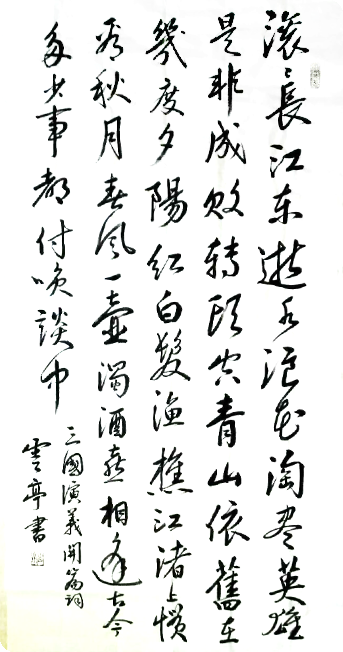 滚〻長江東逝水浪花淘盡英雄
是非成敗轉頭空青山依舊在
幾度夕陽紅白髮漁樵江渚上慣
看秋月春風一壺濁酒喜相逢古今
多少事都付笑談中
三國演義開篇詞
雲亭書